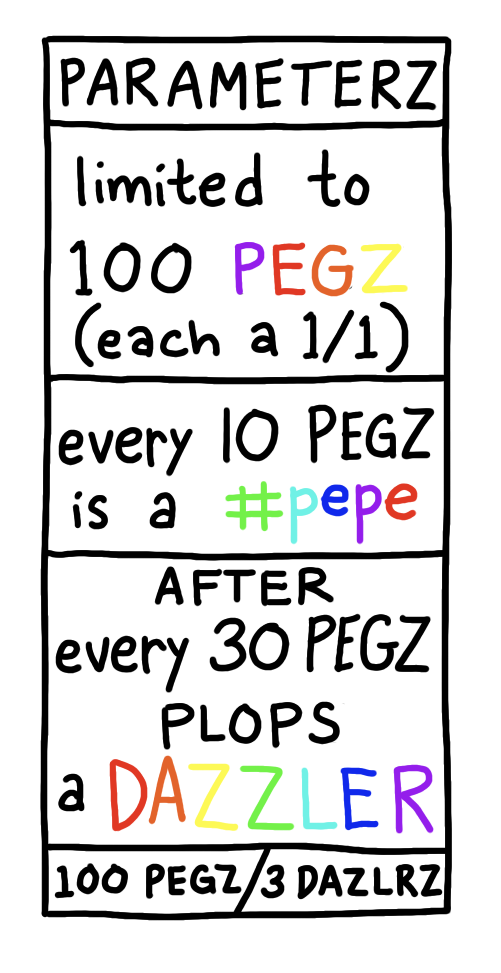 PARAMETERZ
limited to
100 PEGZ
(each a 1/1)
every 10 PEGZ
is a #pepe
AFTER
every 30 PEGZ
PLOPS
a DAZZLER
100 PEGZ/3 DAZLRZ